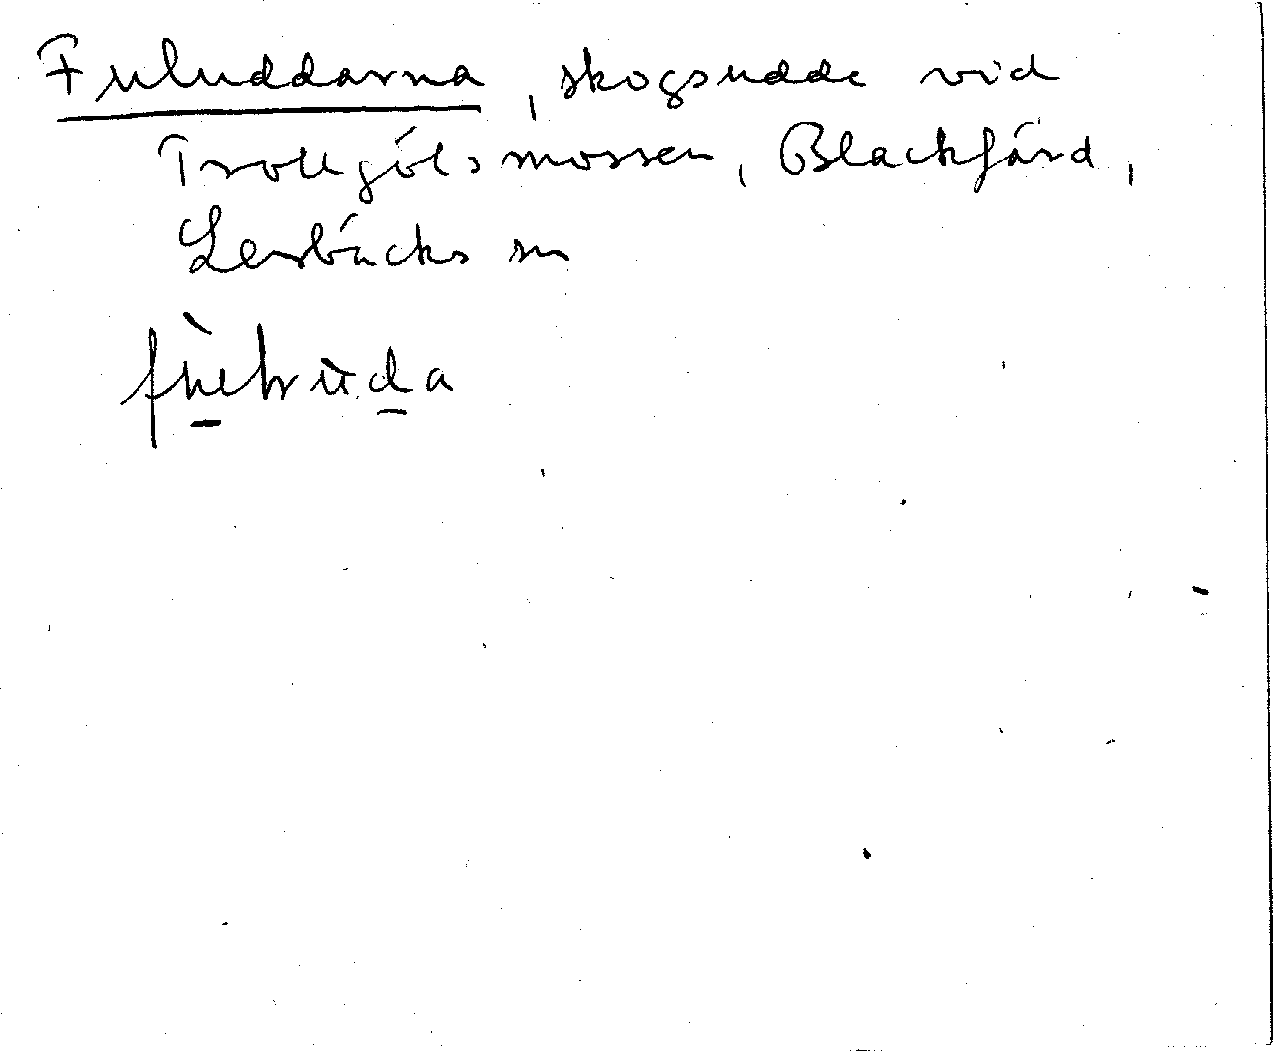 Fuluddarna, skogsudde vid
Trollgölsmossen, Blackfärd,
Lerbäcks sn